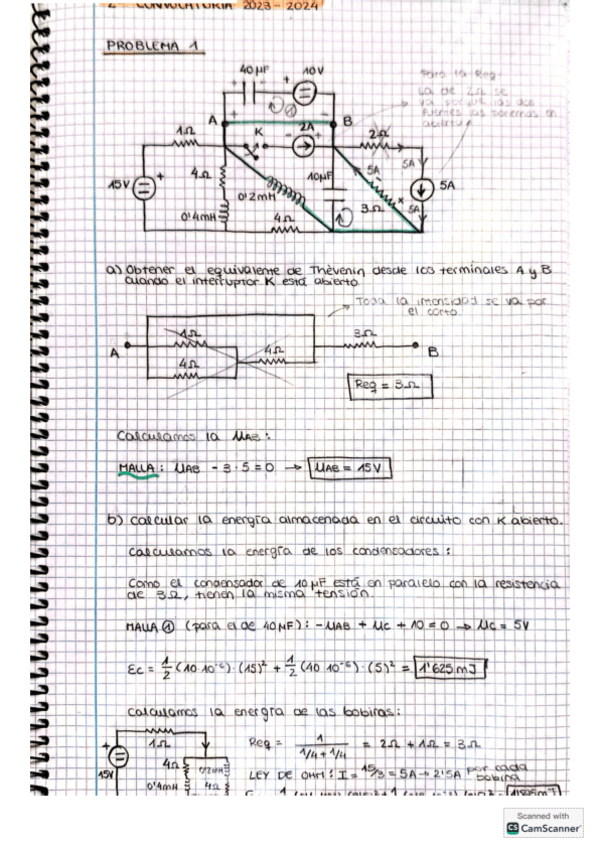 2ª CONVOCATORIA 2023-2024
PROBLEMA 1
40 μF
10V
Para la Req:
La de 2Ω se
va porque las dos
fuentes las ponemos en
abierto
A
B
1Ω
K
2A
2Ω
+
-
15V
4Ω
10μF
5A
5A
5A
0'2mH
3Ω
5A
0'4mH
4Ω
1
a) Obtener el equivalente de Thévenin desde los terminales A y B
cuando el interruptor K está abierto.
Toda la intensidad se va por
el corto.
1Ω
3Ω
A
4Ω
4Ω
B
Req = 3Ω
Calculamos la UAB:
MALLA: UAB - 3·5 = 0 → UAB = 15V
b) Calcular la energía almacenada en el circuito con K abierto.
Calculamos la energía de los condensadores:
Como el condensador de 10μF está en paralelo con la resistencia
de 3Ω, tienen la misma tensión.
MALLA ① (para el de 40μF): -UAB + Uc + 10 = 0 → Uc = 5V
Ec = 1/2 (10·10⁻⁶)·(15)² + 1/2 (40·10⁻⁶)·(5)² = 1'625mJ
Calculamos la energía de las bobinas:
1Ω
Req = 1/(1/4+1/4) = 2Ω + 1Ω = 3Ω
15V
4Ω
0'2mH
0'4mH
4Ω
LEY DE OHM: I = 15/3 = 5A → 2'5A por cada
bobina
Scanned with
CS CamScanner